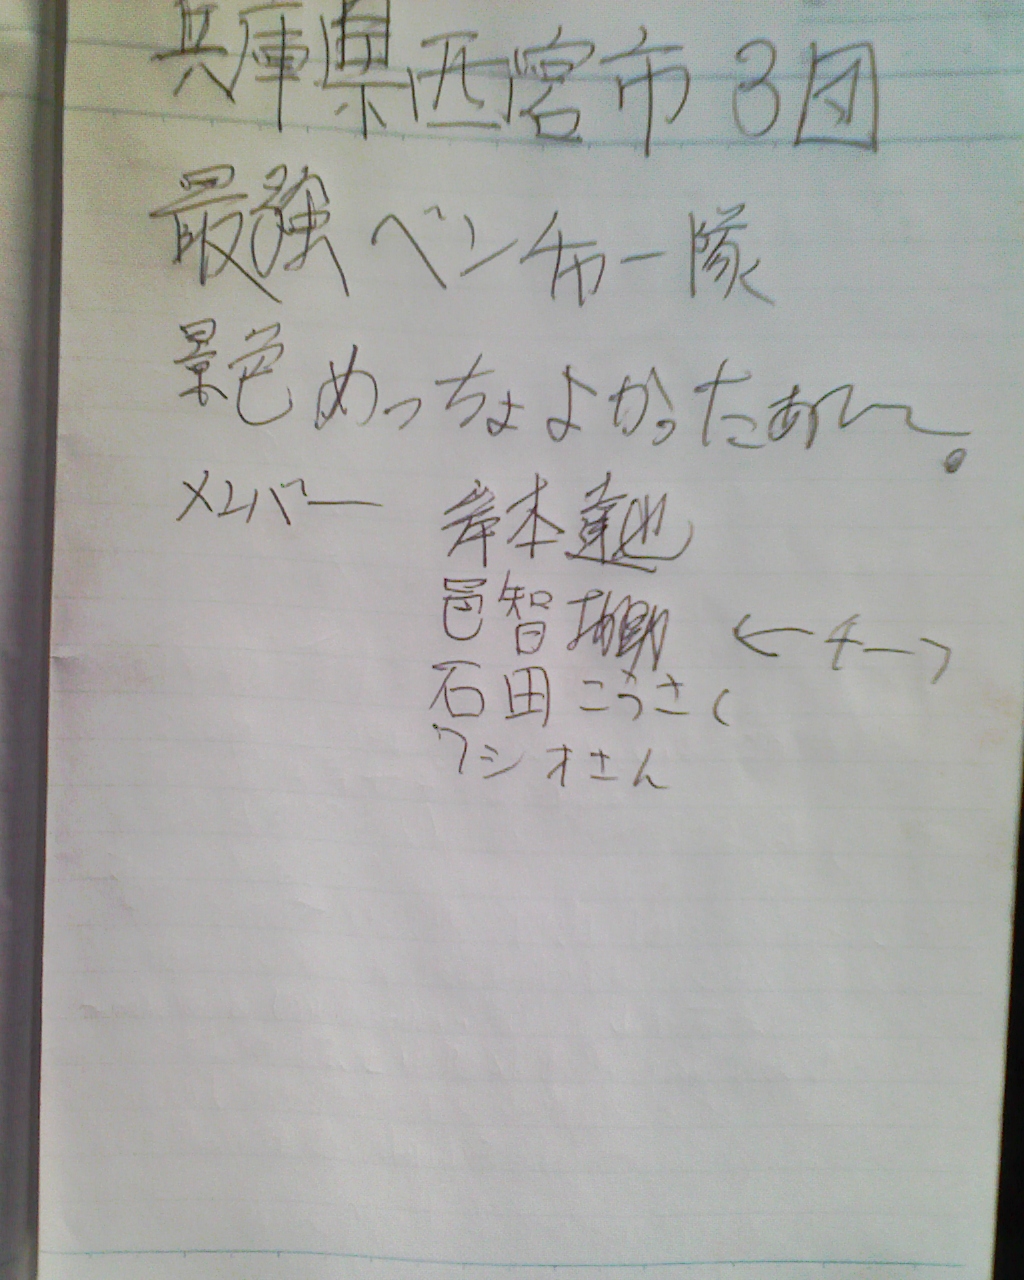 兵庫県西宮市3団
最強ベンチャー隊
景色めっちょよかったぁ〜。
メンバー 岸本達也
邑智 ←チーフ
石田こうさく
ワシオさん